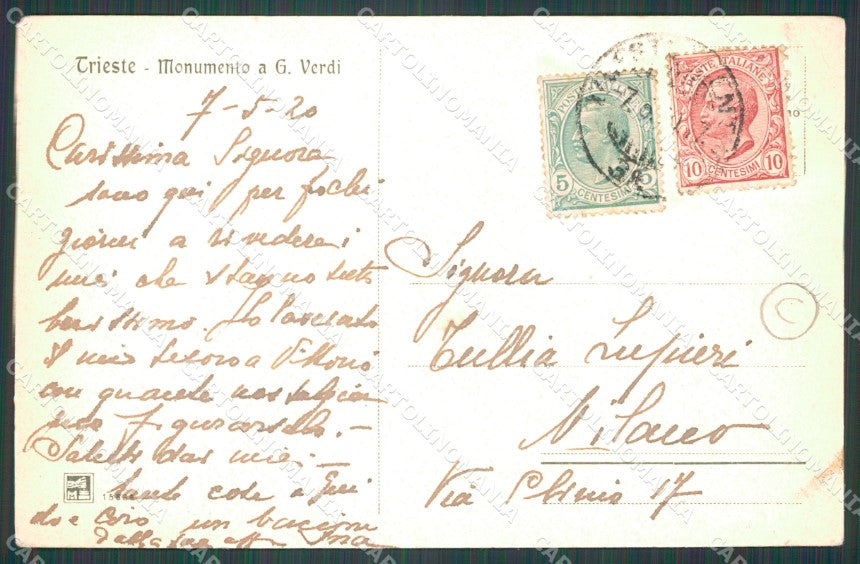 Trieste - Monumento a G. Verdi
7-5-20
Carissima Signora
sono qui per pochi
giorni a rivedere i
miei che stanno tutti
benissimo. Ho lasciato
il mio tesoro a
con
figurarselo. -
Saluti dai miei. -
tante cose a Gui
do e coro un bacione
dalla sua aff
POSTE ITALIANE
5 5
CENTESIMI
POSTE ITALIANE
10 10
CENTESIMI
Signora
Tullia Lupieri
Milano
Via Plinio 17
C
CARTOLINOMANIA